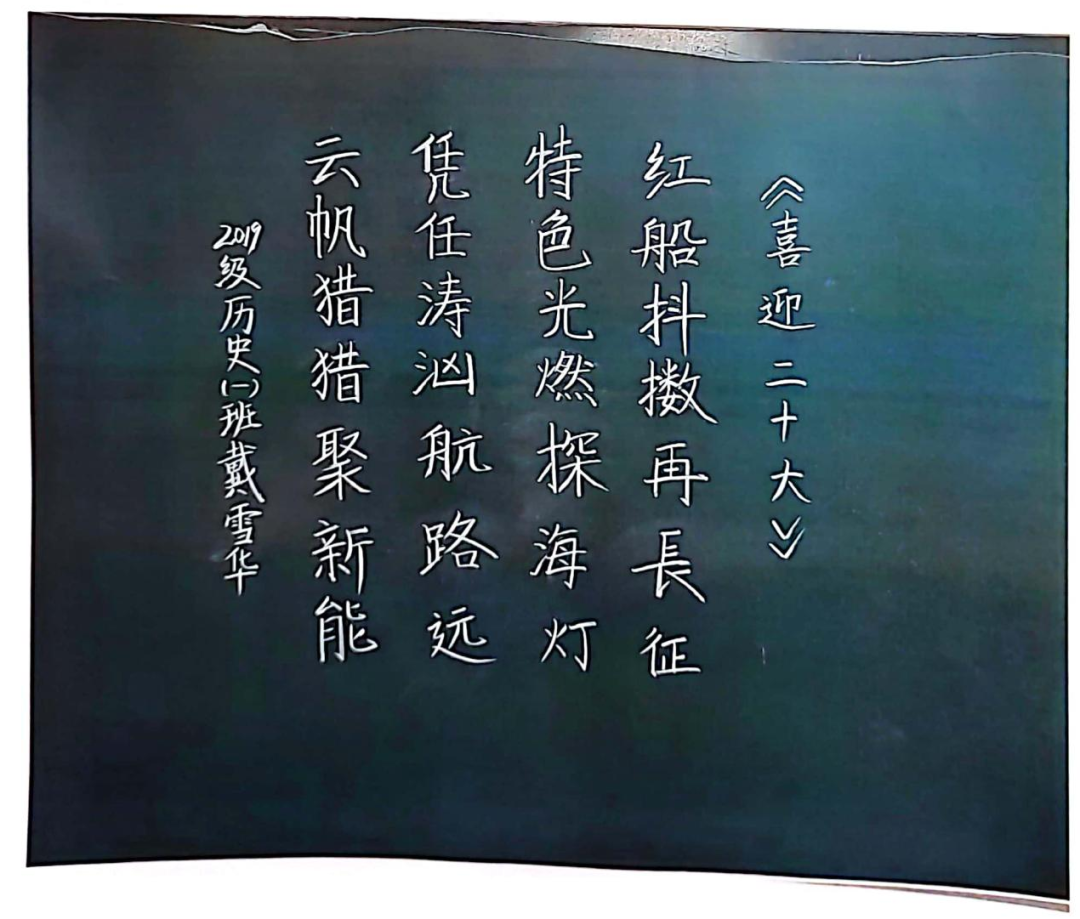 《喜迎二十大》
红船抖擞再長征
特色光燃探海灯
凭任涛汹航路远
云帆猎猎聚新能
2019级历史(一)班戴雪华